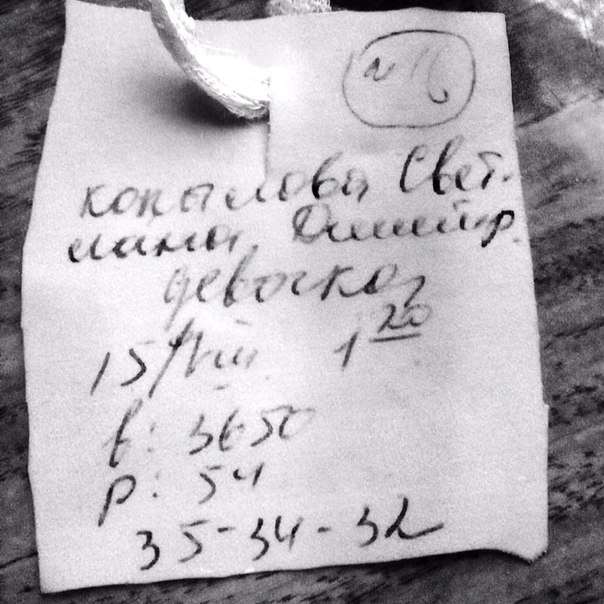 № 16
Копылова Свет-
лана Дмитр.
девочка
15/VIII 1 20
в: 3650
р: 54
35-34-32